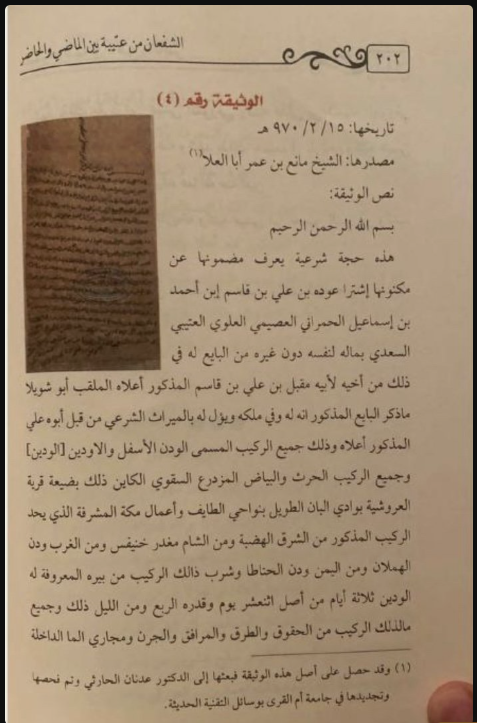 الشفعان من عتيبة بين الماضي والحاضر
٢٠٢
الوثيقة رقم (٤)
تاريخها: ١٥/ ٢/ ٩٧٠ هـ
مصدرها: الشيخ مانع بن عمر أبا العلا(١)
نص الوثيقة:
بسم الله الرحمن الرحيم
هذه حجة شرعية يعرف مضمونها عن
مكنونها إشترا عوده بن علي بن قاسم إبن أحمد
بن إسماعيل الحمراني العصيمي العلوي العتيبي
السعدي بماله لنفسه دون غيره من البايع له في
ذلك من أخيه لأبيه مقبل بن علي بن قاسم المذكور أعلاه الملقب أبو شويلا
ماذكر البايع المذكور انه له وفي ملكه ويؤل له بالميراث الشرعي من قبل أبوه علي
المذكور أعلاه وذلك جميع الركيب المسمى الودن الأسفل والاودين [الودين]
وجميع الركيب الحرث والبياض المزدرع السقوي الكاين ذلك بضيعة قرية
العروشية بوادي البان الطويل بنواحي الطايف وأعمال مكة المشرفة الذي يحد
الركيب المذكور من الشرق الهضبة ومن الشام مغدر خنيفس ومن الغرب ودن
الهملان ومن اليمن ودن الحتاطا وشرب ذالك الركيب من بيره المعروفة له
الودين ثلاثة أيام من أصل اثنعشر يوم وقدره الربع ومن الليل ذلك وجميع
مالذلك الركيب من الحقوق والطرق والمرافق والجرن ومجاري الما الداخلة
(١) وقد حصل على أصل هذه الوثيقة فبعثها إلى الدكتور عدنان الحارثي وتم فحصها
وتجديدها في جامعة أم القرى بوسائل التقنية الحديثة.